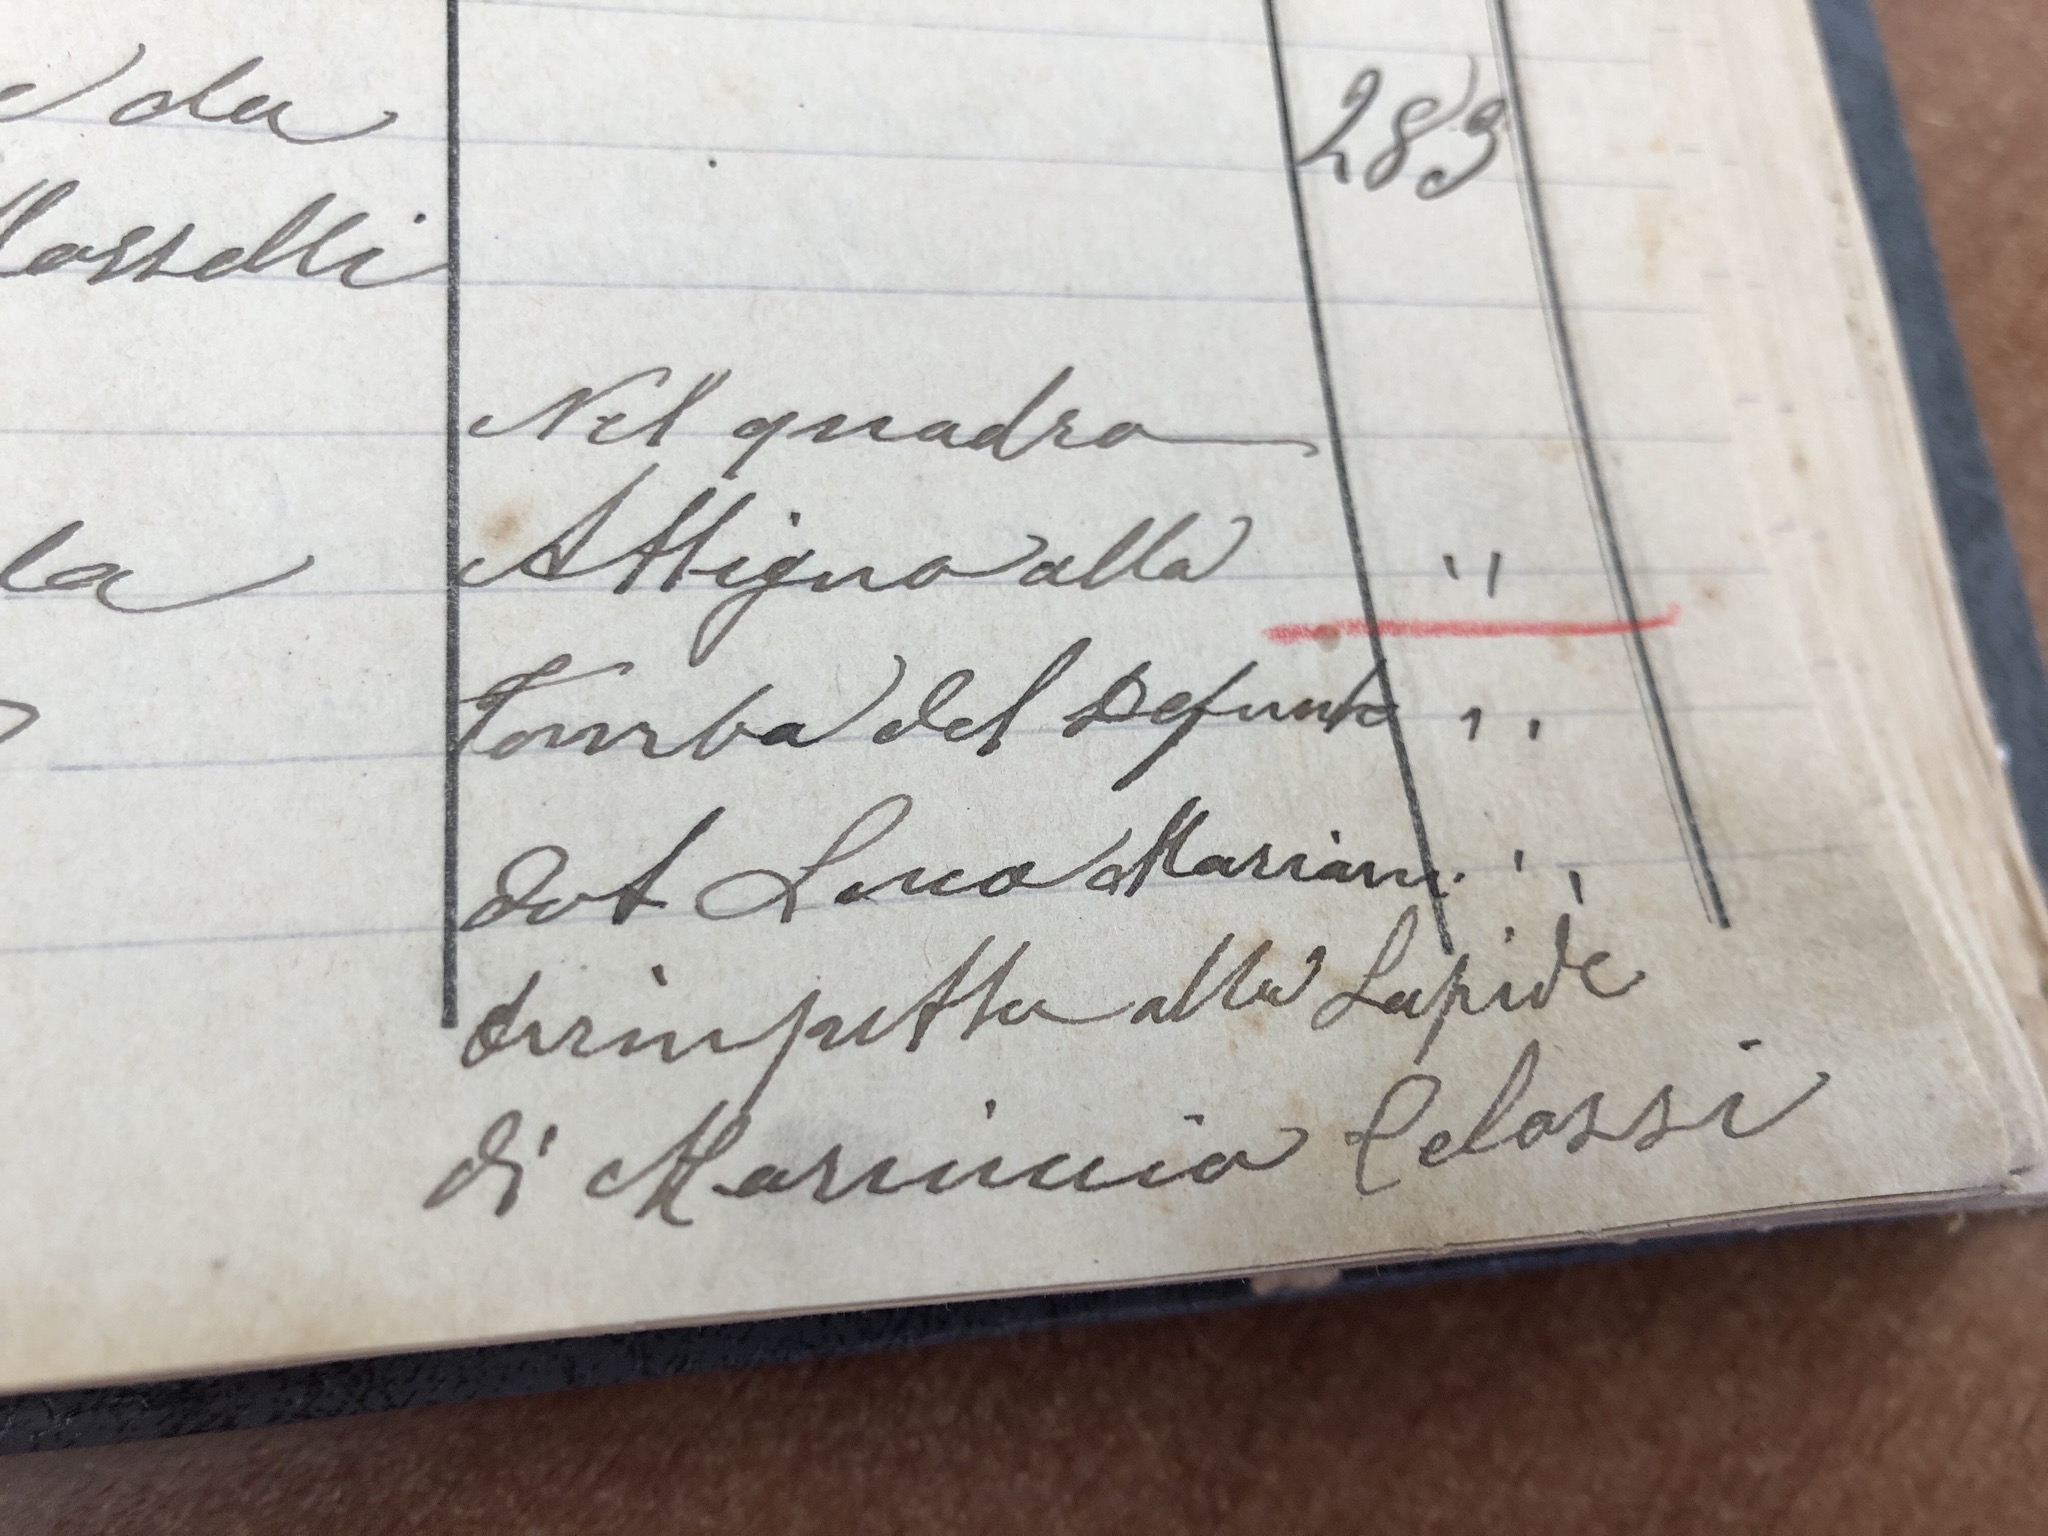 da
283
Nel quadro
Attiguo alla "
la
Tomba del Defunto "
Dot Luca Mariani "
dirimpetto alla Lapide
di Marinuccia Celossi